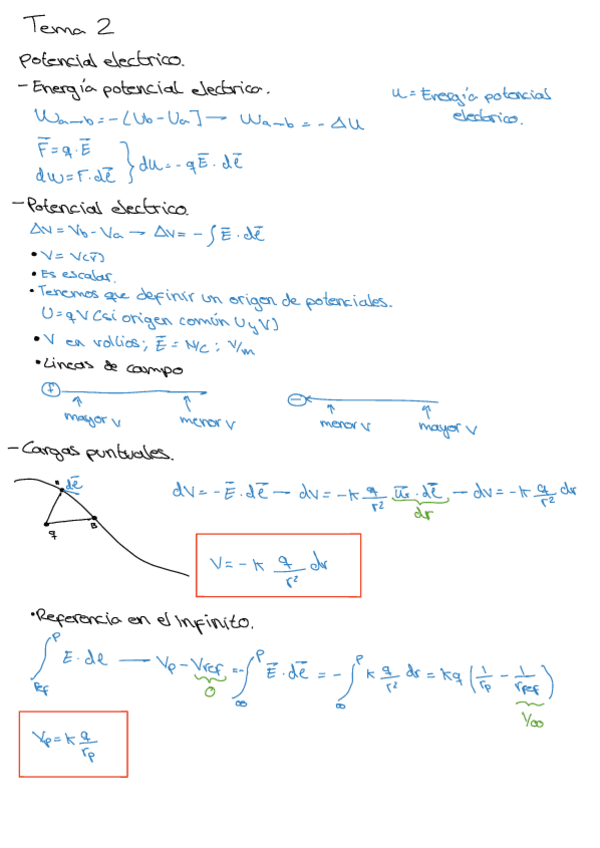 Tema 2
Potencial electrico.
- Energía potencial electrica.
u = Energía potencial
electrico.
Wa→b = -[Ub - Ua] → Wa→b = -ΔU
F̄ = q · Ē
dw = F · dē } du = - qĒ · dē
- Potencial electrico.
ΔV = Vb - Va → ΔV = - ∫ Ē · dē
• V = V(r̄)
• Es escalar.
• Tenemos que definir un origen de potenciales.
U = qV (si origen común U y V)
• V en voltios; Ē = N/C ; V/m
• Lineas de campo
+ −
mayor V menor V menor V mayor V
- Cargas puntuales.
dē
q B
dV = - Ē · dē — dV = -k q/r² ūr · dē — dV = -k q/r² dr
dr
V = - k q/r² dr
• Referencia en el infinito.
∫ref^P E · de → Vp - Vref = - ∫∞^P Ē · dē = - ∫∞^P k q/r² dr = kq (1/rp - 1/rref)
0
1/∞
Vp = k q/rp